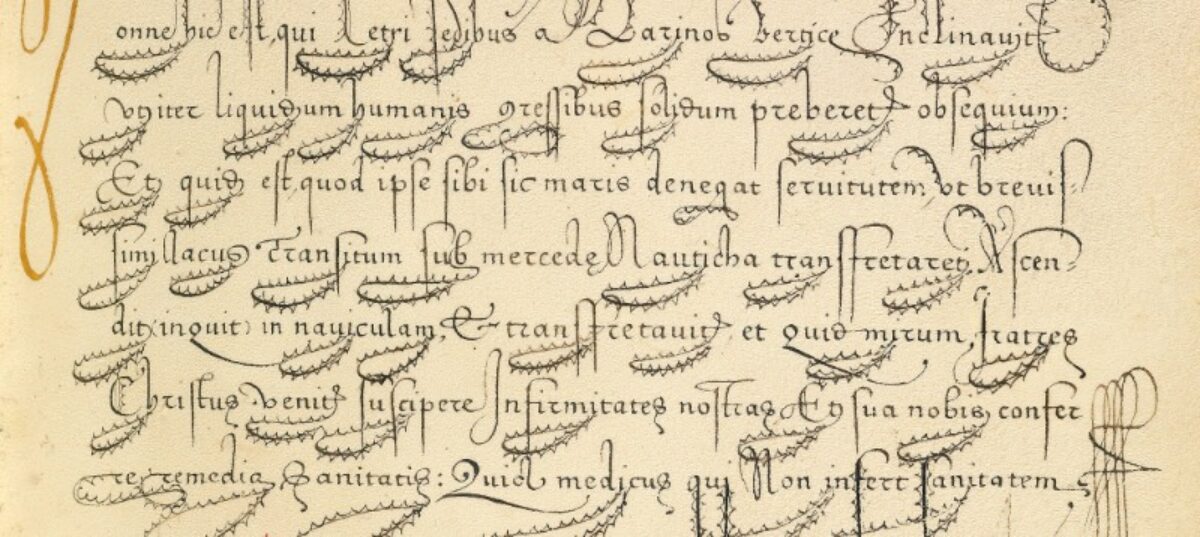 onne hic est, qui Petri pedibus a Marinos vertice Inclinauit
vtiter liquidum humanis gressibus solidum preberet obsequium:
Et quid est, quod ipse sibi sic maris denegat seruitutem, vt breuis-
simi lacus transitum sub mercede Nauticha transfretaret, Ascen-
dit (inquit) in nauiculam, & transfretauit et quid mirum, fratres
Christus venit suscipere Infirmitates nostras Et sua nobis confer
re remedia Sanitatis: Quid medicus qui Non infert sanitatem